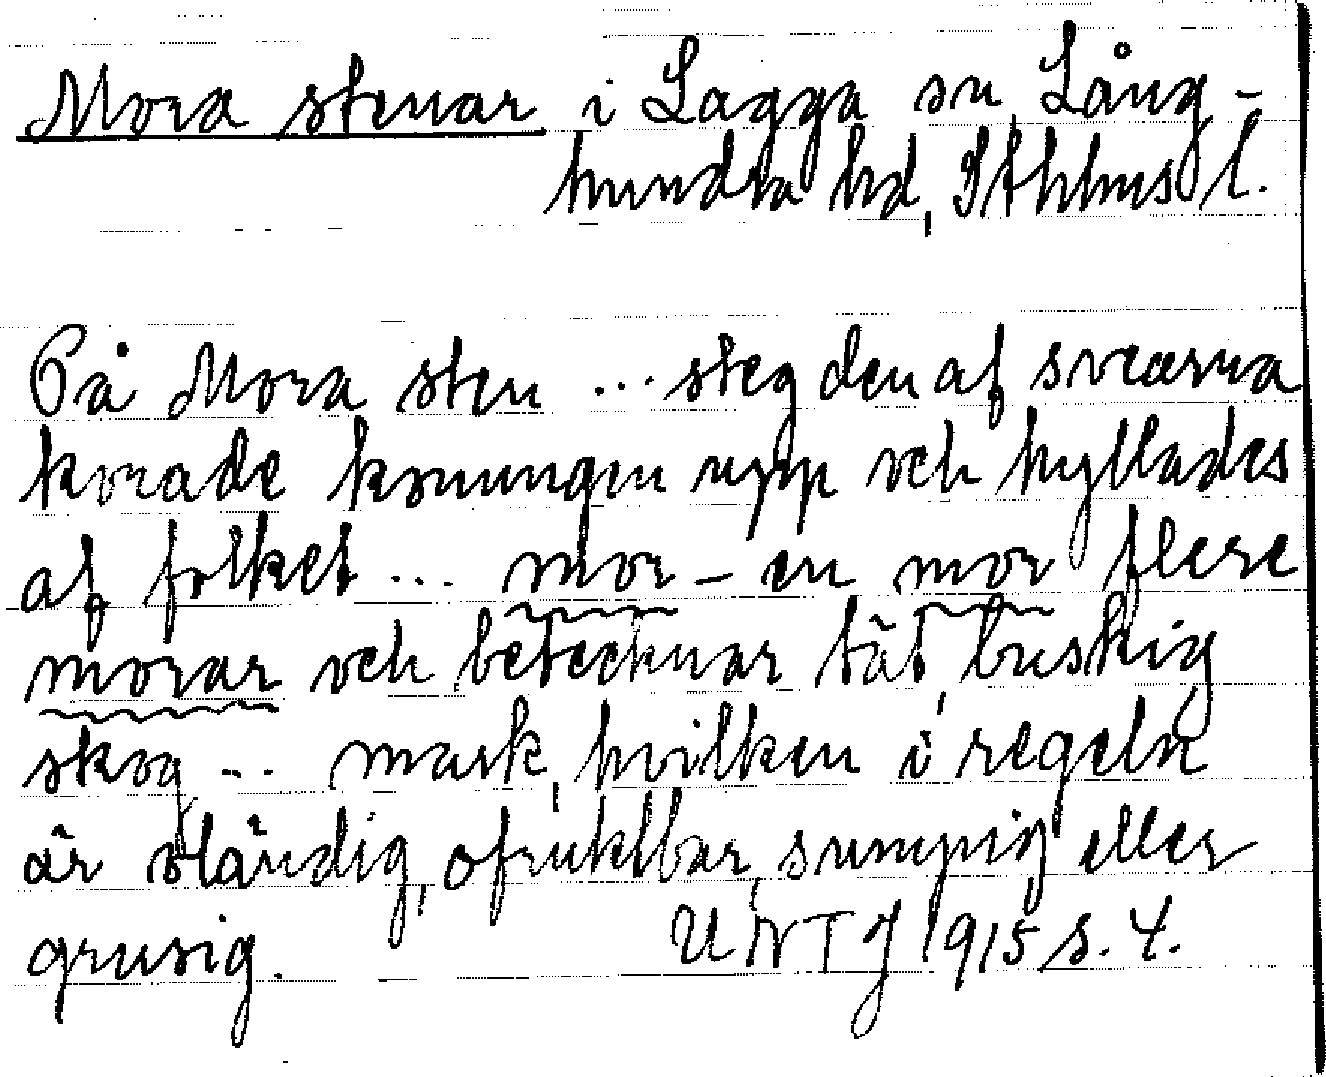 Mora stenar i Lagga sn, Lång-
hundra hd, Sthlms l.
På Mora sten ... steg den af svearna
korade konungen upp och hyllades
af folket ... mor - en mor flere
morar och betecknar tät, buskig
skog ... mark, hvilken i regeln
är oländig, ofruktbar, sumpig eller
grusig. UNTJ 1915 s. 4.